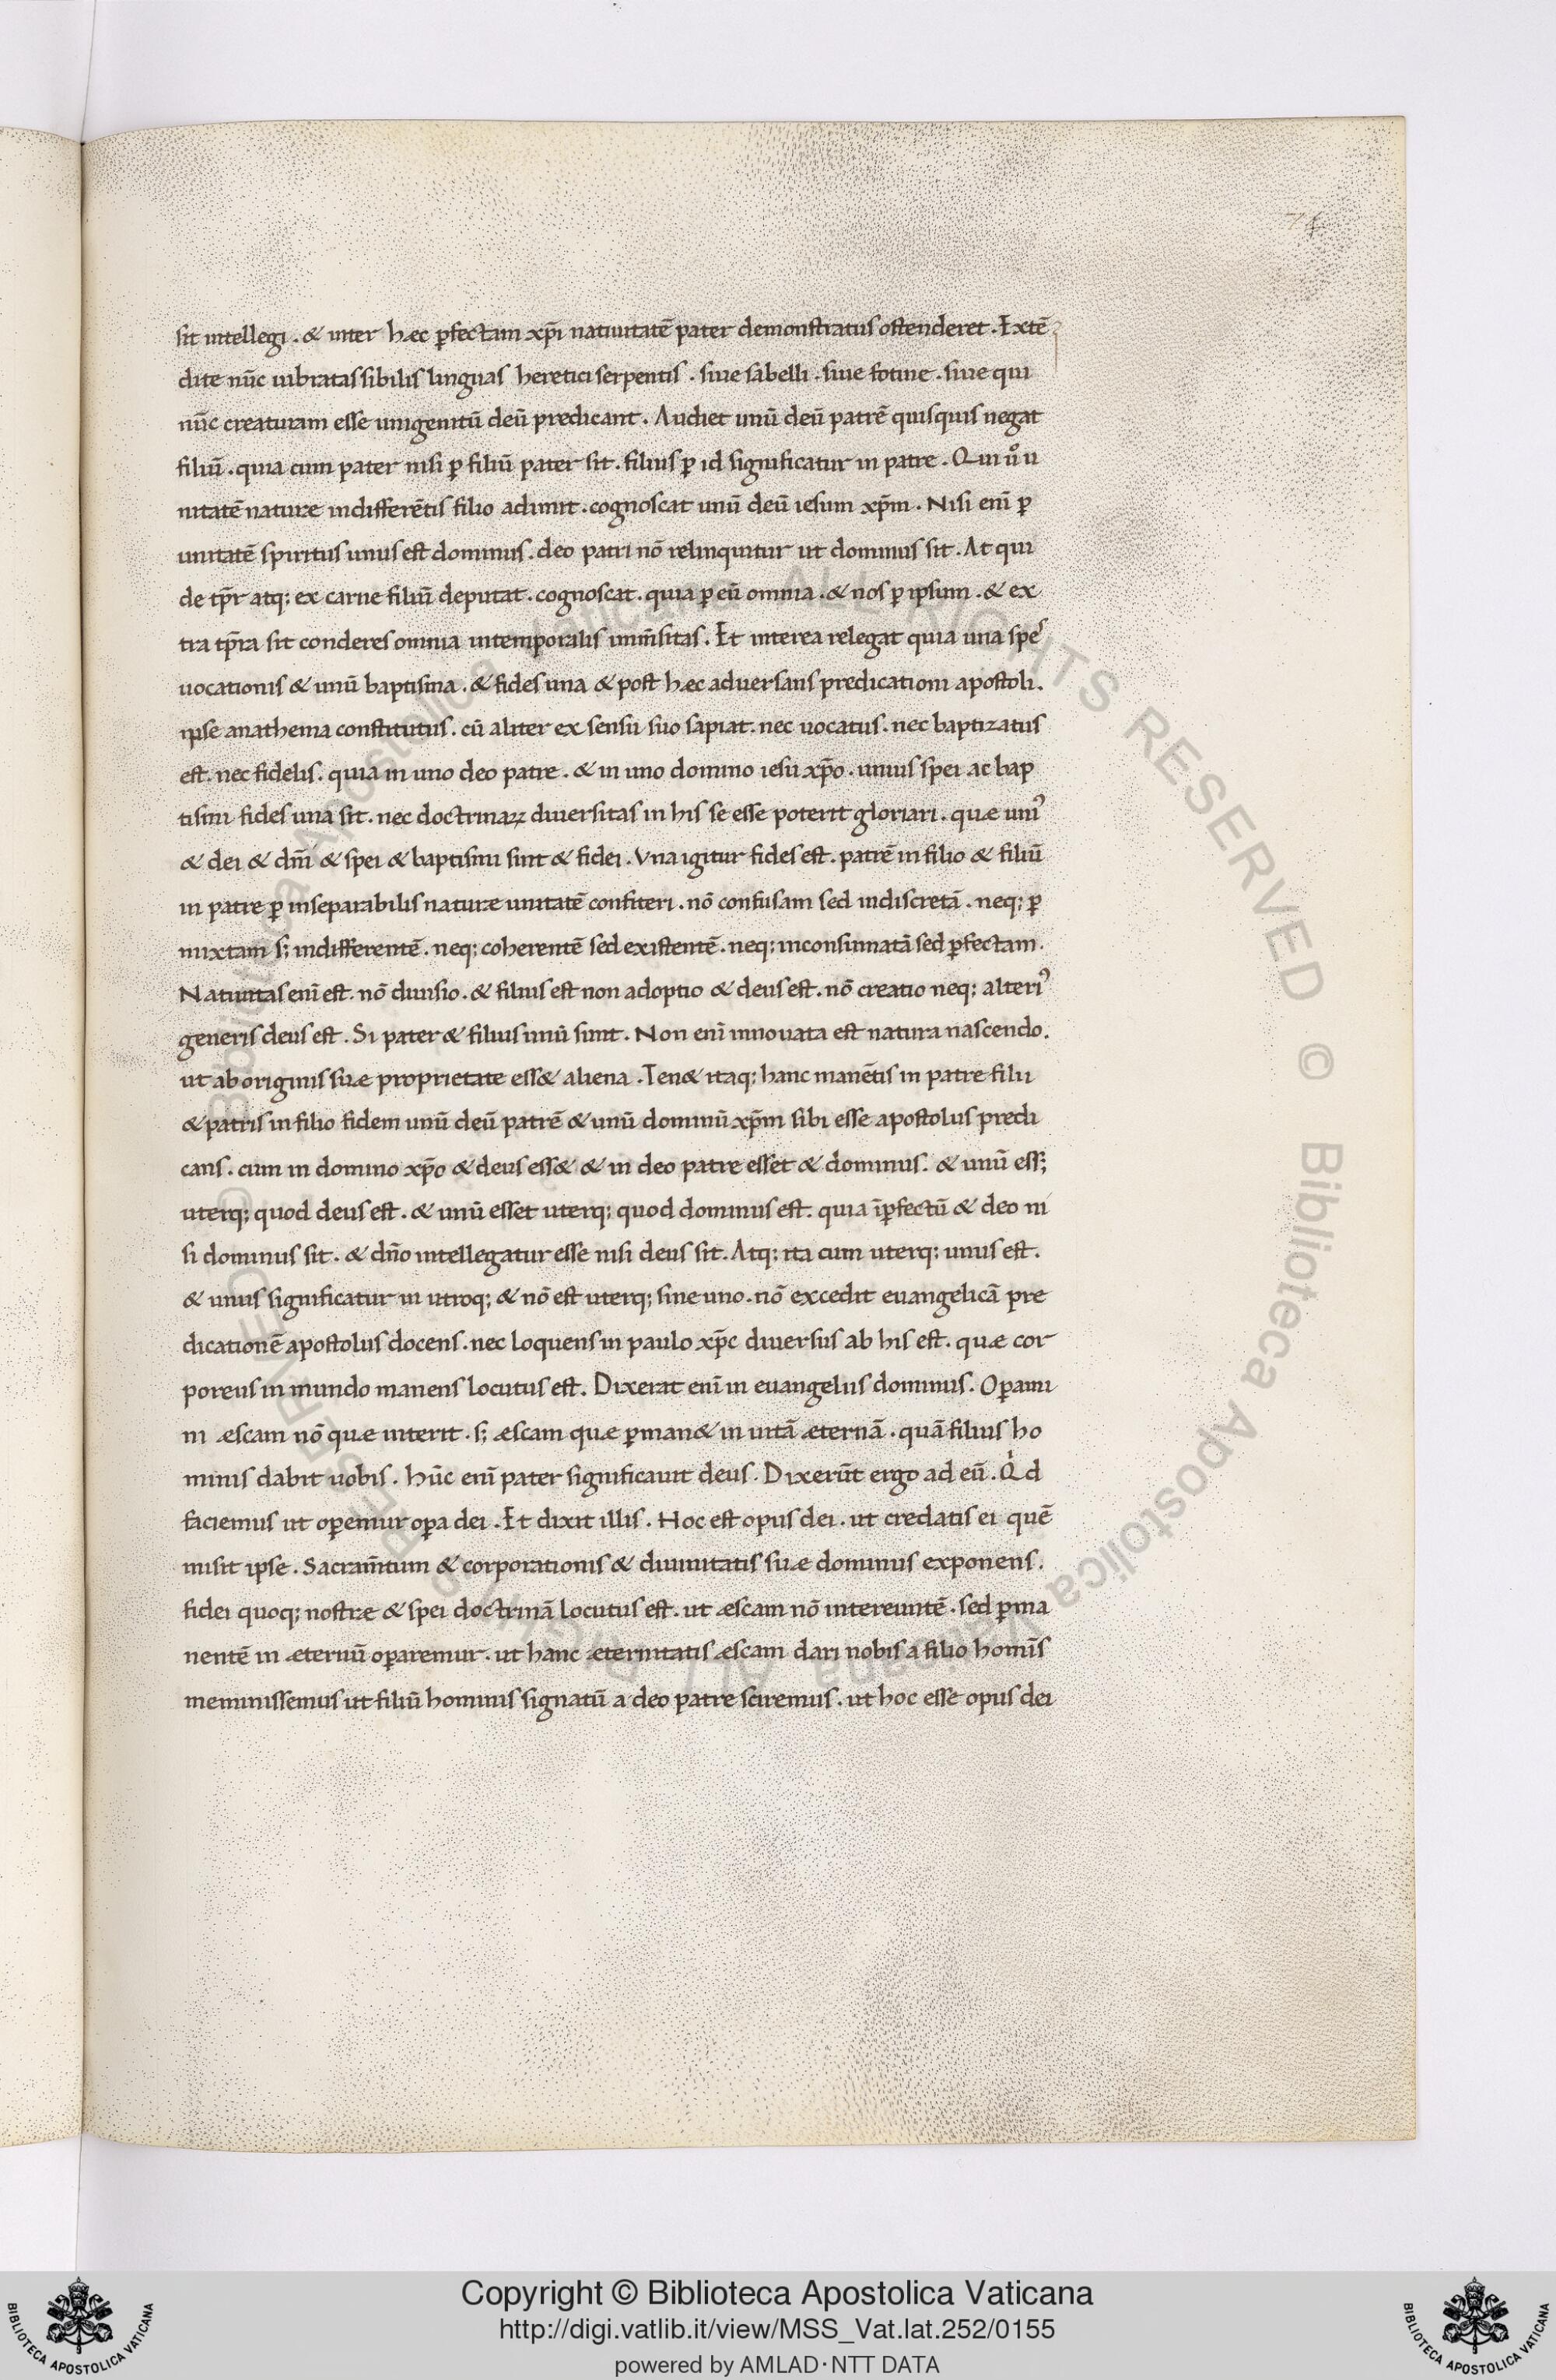 74
sit intellegi . & inter hæc ꝑfectam xp̄i natiuitatē pater demonstratus ostenderet . Extē
dite nūc uibratas sibilis linguas heretici serpentis . siue sabelli . siue fotine . siue qui
nūc creaturam esse unigenitū deū predicant . Audiet unū deū patrē quisquis negat
filiū . quia cum pater nisi ꝑ filiū pater sit . filius ꝑ id significatur in patre . Qui uͦ u
nitatē naturæ indifferētis filio adimit . cognoscat unū deū iesum xp̄m . Nisi enī ꝑ
unitatē spiritus unus est dominus . deo patri nō relinquitur ut dominus sit . At qui
de tp̄r atq; ex carne filiū deputat . cognoscat . quia ꝑ eū omnia . & nos ꝑ ipsum . & ex
tra tp̄ra sit conderes omnia intemporalis imm̄sitas . Et interea relegat quia una speˢ
uocationis & unū baptisma . & fides una & post hæc aduersans predicationi apostoli .
ipse anathema constitutus . cū aliter ex sensu suo sapiat . nec uocatus . nec baptizatus
est . nec fidelis . quia in uno deo patre . & in uno domino iesu xp̄o . unius spei ac bap
tismi fides una sit . nec doctrinaꝝ diuersitas in his se esse poterit gloriari . quæ uniꝰ
& dei & dm̄ & spei & baptismi sint & fidei . Vna igitur fides est . patrē in filio & filiū
in patre ꝑ inseparabilis naturæ unitatē confiteri . nō confusam sed indiscretā . neq; ꝑ
mixtam s; indifferentē . neq; coherentē sed existentē . neq; inconsumatā sed ꝑfectam .
Natiuitas enī est . nō diuisio . & filius est non adoptio & deus est . nō creatio neq; alteriꝰ
generis deus est . Si pater & filius unū sunt . Non enī innouata est natura nascendo .
ut ab originis suæ proprietate ess& aliena . Ten& itaq; hanc manētis in patre filii
& patris in filio fidem unū deū patrē & unū dominū xp̄m sibi esse apostolus predi
cans . cum in domino xp̄o & deus ess& & in deo patre esset & dominus . & unū ess;
uterq; quod deus est . & unū esset uterq; quod dominus est . quia īꝑfectū & deo ni
si dominus sit . & dn̄o intellegatur esse nisi deus sit . Atq; ita cum uterq; unus est .
& unus significatur in utroq; & nō est uterq; sine uno . nō excedit euangelicā pre
dicationē apostolus docens . nec loquens in paulo xp̄c diuersus ab his est . quæ cor
poreus in mundo manens locutus est . Dixerat enī in euangeliis dominus . Oꝑami
ni æscam nō quæ interit . s; æscam quæ ꝑman& in uitā æternā . quā filius ho
minis dabit uobis . Hūc enī pater significauit deus . Dixerūt ergo ad eū . Qͥd
faciemus ut oꝑemur oꝑa dei . Et dixit illis . Hoc est opus dei . ut credatis ei quē
misit ipse . Sacram̄tum & corporationis & diuinitatis suæ dominus exponens .
fidei quoq; nostræ & spei doctrinā locutus est . ut æscam nō intereuntē . sed ꝑma
nentē in æternū oꝑaremur . ut hanc æternitatis æscam dari nobis a filio homīs
meminissemus ut filiū hominis signatū a deo patre sciremus . ut hoc esse opus dei
Copyright © Biblioteca Apostolica Vaticana
http://digi.vatlib.it/view/MSS_Vat.lat.252/0155
powered by AMLAD·NTT DATA